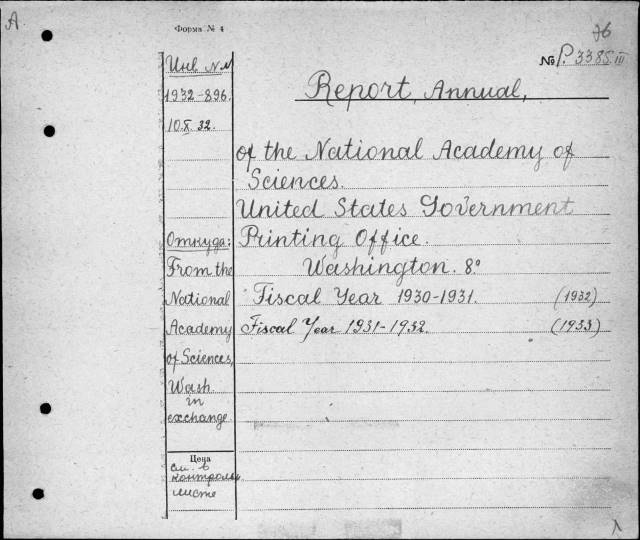 A
Форма № 4
36
№ P. 3385 III
Инв №№
1932-896.
10.X.32.
Откуда:
From the
National
Academy
of Sciences,
Wash.
in
exchange
Цена
см. в
контрольн.
листе
Report, Annual,
of the National Academy of
Sciences.
United States Government
Printing Office.
Washington. 8°
Fiscal Year 1930-1931. (1932)
Fiscal Year 1931-1932. (1933)